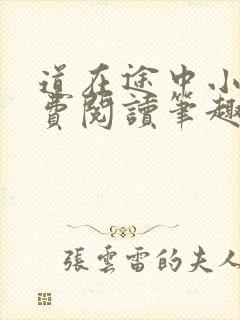 道在途中小
費閱讀筆趣
張雲雷的夫人